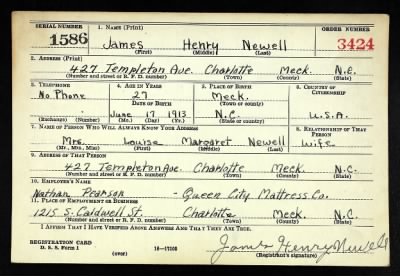 SERIAL NUMBER 1. NAME (Print) ORDER NUMBER
1586 James Henry Newell 3424
(First) (Middle) (Last)
2. ADDRESS (Print)
427 Templeton Ave. Charlotte Meck. N.C.
(Number and street or R. F. D. number) (Town) (County) (State)
3. TELEPHONE 4. AGE IN YEARS 5. PLACE OF BIRTH 6. COUNTRY OF CITIZENSHIP
No Phone 27 Meck.
DATE OF BIRTH (Town or county)
June 17 1913 N.C. U.S.A.
(Exchange) (Number) (Mo.) (Day) (Yr.) (State or country)
7. NAME OF PERSON WHO WILL ALWAYS KNOW YOUR ADDRESS 8. RELATIONSHIP OF THAT PERSON
Mrs. Louise Margaret Newell Wife
(Mr., Mrs., Miss) (First) (Middle) (Last)
9. ADDRESS OF THAT PERSON
427 Templeton Ave. Charlotte Meck. N.C.
(Number and street or R. F. D. number) (Town) (County) (State)
10. EMPLOYER'S NAME
Nathan Pearson - Queen City Mattress Co.
11. PLACE OF EMPLOYMENT OR BUSINESS
1215 S. Caldwell St. Charlotte Meck. N.C.
(Number and street or R. F. D. number) (Town) (County) (State)
I AFFIRM THAT I HAVE VERIFIED ABOVE ANSWERS AND THAT THEY ARE TRUE.
REGISTRATION CARD James Henry Newell
D. S. S. Form 1 (over) 16-17105 (Registrant's signature)